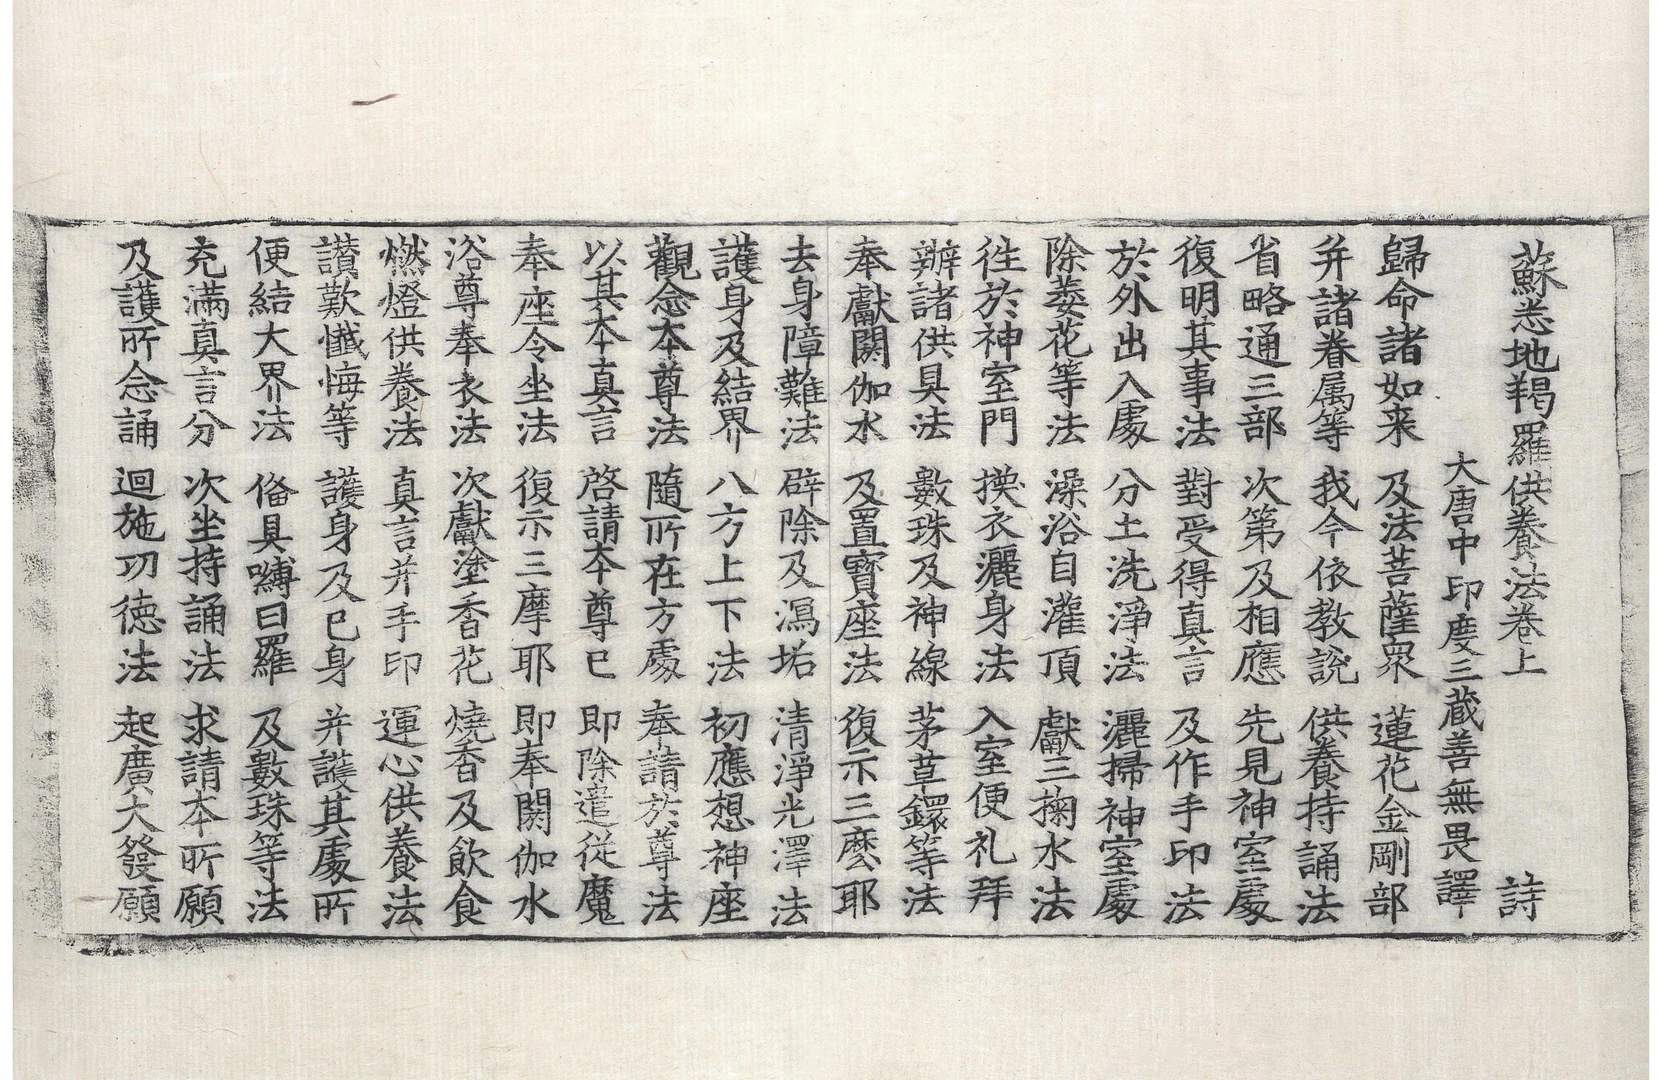 蘇悉地羯羅供養法卷上 詩
大唐中印度三藏善無畏譯
歸命諸如来 及法菩薩眾 蓮花金剛部
并諸眷属等 我今依教說 供養持誦法
省略通三部 次第及相應 先見神室處
復明其事法 對受得真言 及作手印法
於外出入處 分土洗淨法 灑掃神室處
除萎花等法 澡浴自灌頂 獻三掬水法
徃於神室門 換衣灑身法 入室便礼拜
辦諸供具法 數珠及神線 茅草鐶等法
奉獻閼伽水 及置寶座法 復示三麼耶
去身障難法 辟除及瀉垢 清淨光澤法
護身及結界 八方上下法 初應想神座
觀念本尊法 隨所在方處 奉請於尊法
以其本真言 啓請本尊已 即除遣從魔
奉座令坐法 復示三摩耶 即奉閼伽水
浴尊奉衣法 次獻塗香花 燒香及飲食
燃燈供養法 真言并手印 運心供養法
讃歎懺悔等 護身及已身 并護其處所
便結大界法 俻具嚩日羅 及數珠等法
充滿真言分 次坐持誦法 求請本所願
及護所念誦 迴施功德法 起廣大發願